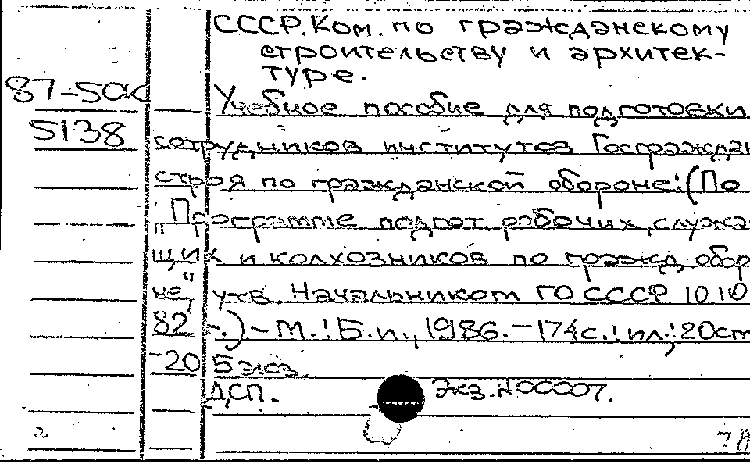 СССР. Ком. по гражданскому
строительству и архитек-
туре.
87-5ДК
Учебное пособие для подготовки
5138
сотрудников институтов Госграждан
строя по гражданской обороне: (По
"Программе подгот. рабочих, служа
щих и колхозников по гражд. обор
не", утв. Начальником ГО СССР 10.10
82 г.) - М.: Б.и., 1986. - 174с.: ил.; 20см
-20 Б экз.
ДСП. Экз. N00007.